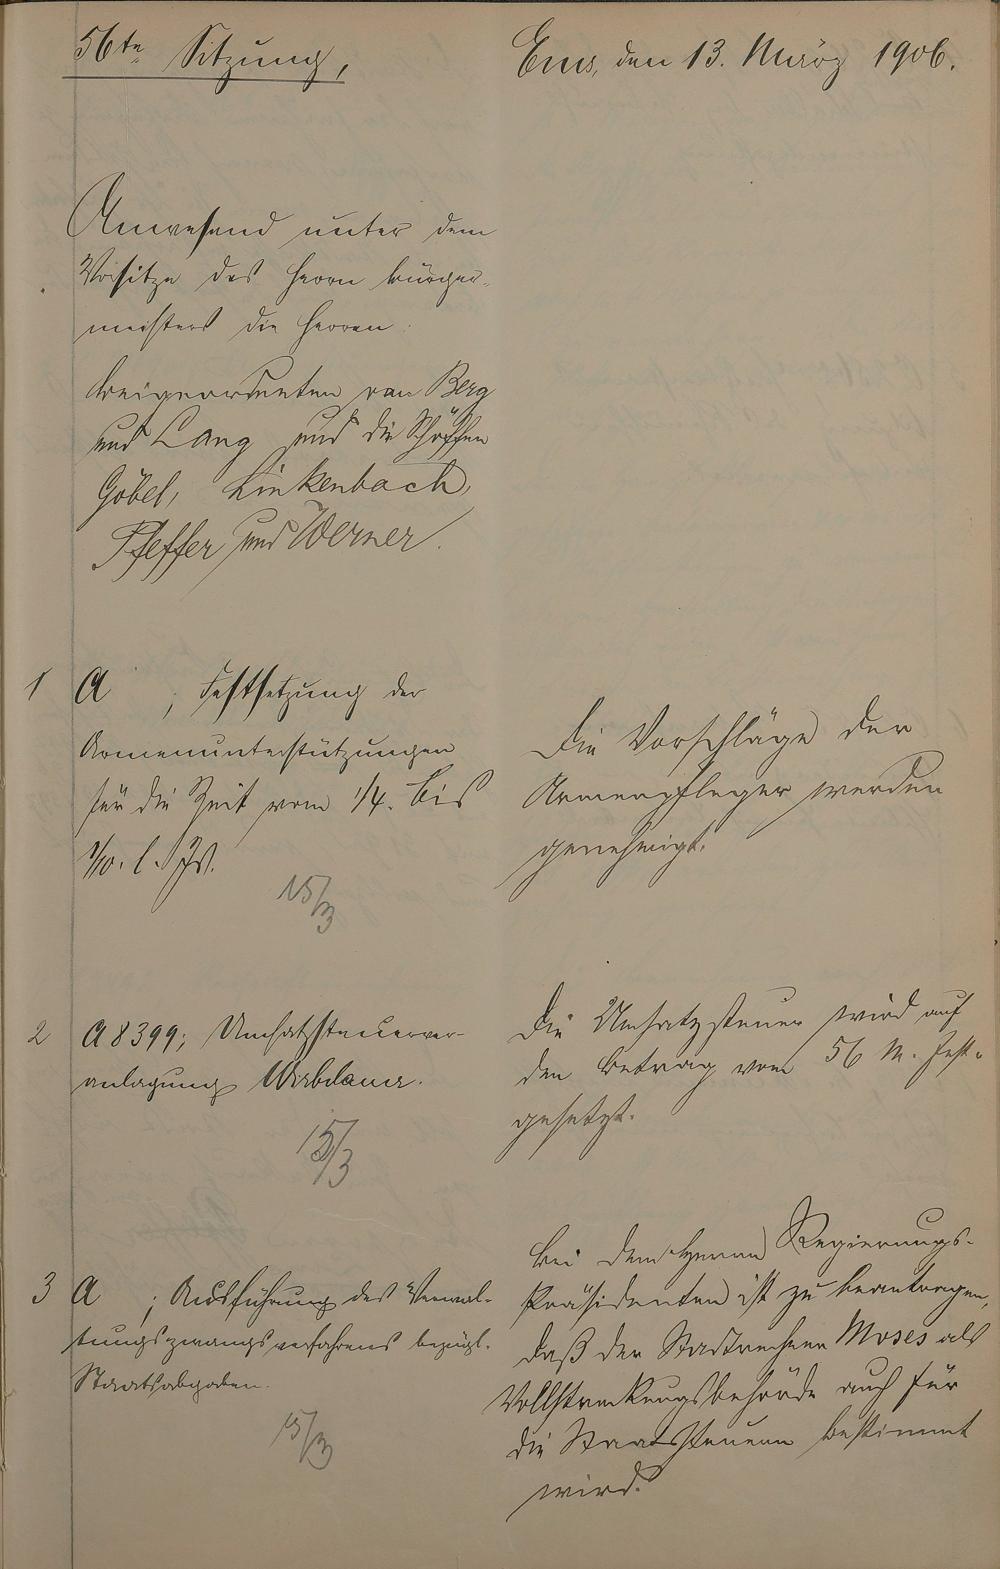 56te Sitzung,
Ems, den 13. März 1906.
Anwesend unter dem
Vorsitze des Herrn Bürger-
meisters die Herren:
Beigeordneten van Berg
und Lang und die Schöffen
Göbel, Linkenbach,
Pfeffer und Werner.
1 A ; Festsetzung der
Armenunterstützungen
für die Zeit vom 1/4. bis
1/10. l. Js.
15/3
Die Vorschläge der
Armenpfleger werden
genehmigt.
2 A 8399; Umsatzsteuerver-
anlagung
15/3
Die Umsatzsteuer wird auf
den Betrag von 56 M. fest-
gesetzt.
3 A ; Ausführung des Verwal-
tungszwangsverfahrens bezügl.
Staatsabgaben.
15/3
Bei dem Herrn Regierungs-
Präsidenten ist zu beantragen,
daß der Stadtrechner Moses als
Vollstreckungsbehörde auch für
die Staatssteuern bestimmt
wird.